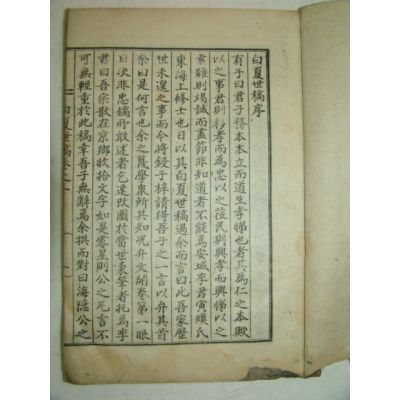 白夏世稿序
有子曰君子務本本立而道生孝悌也者其為仁之本歟
以之事君則移孝而為忠以之莅民則興孝而興悌以之
當難則竭誠而盡節非知道者不能焉安城李君寅煥氏
東海上修士也日以其白夏世稿過余而言曰此吾家歷
世未遑之事而今將鋟于梓請得吾子之一言以弁其首
余曰是何言也余之蔑學衆所共知况弁文開卷第一眼
目决非忠鎬所敢述者乞速改圖於當世秉筆者托焉李
君曰吾宗散在京鄉收拾文字如是寥星則公之一言不
可無輕重於此稿幸吾子無辭焉余拱而對曰海隱公之
白夏世稿卷之一